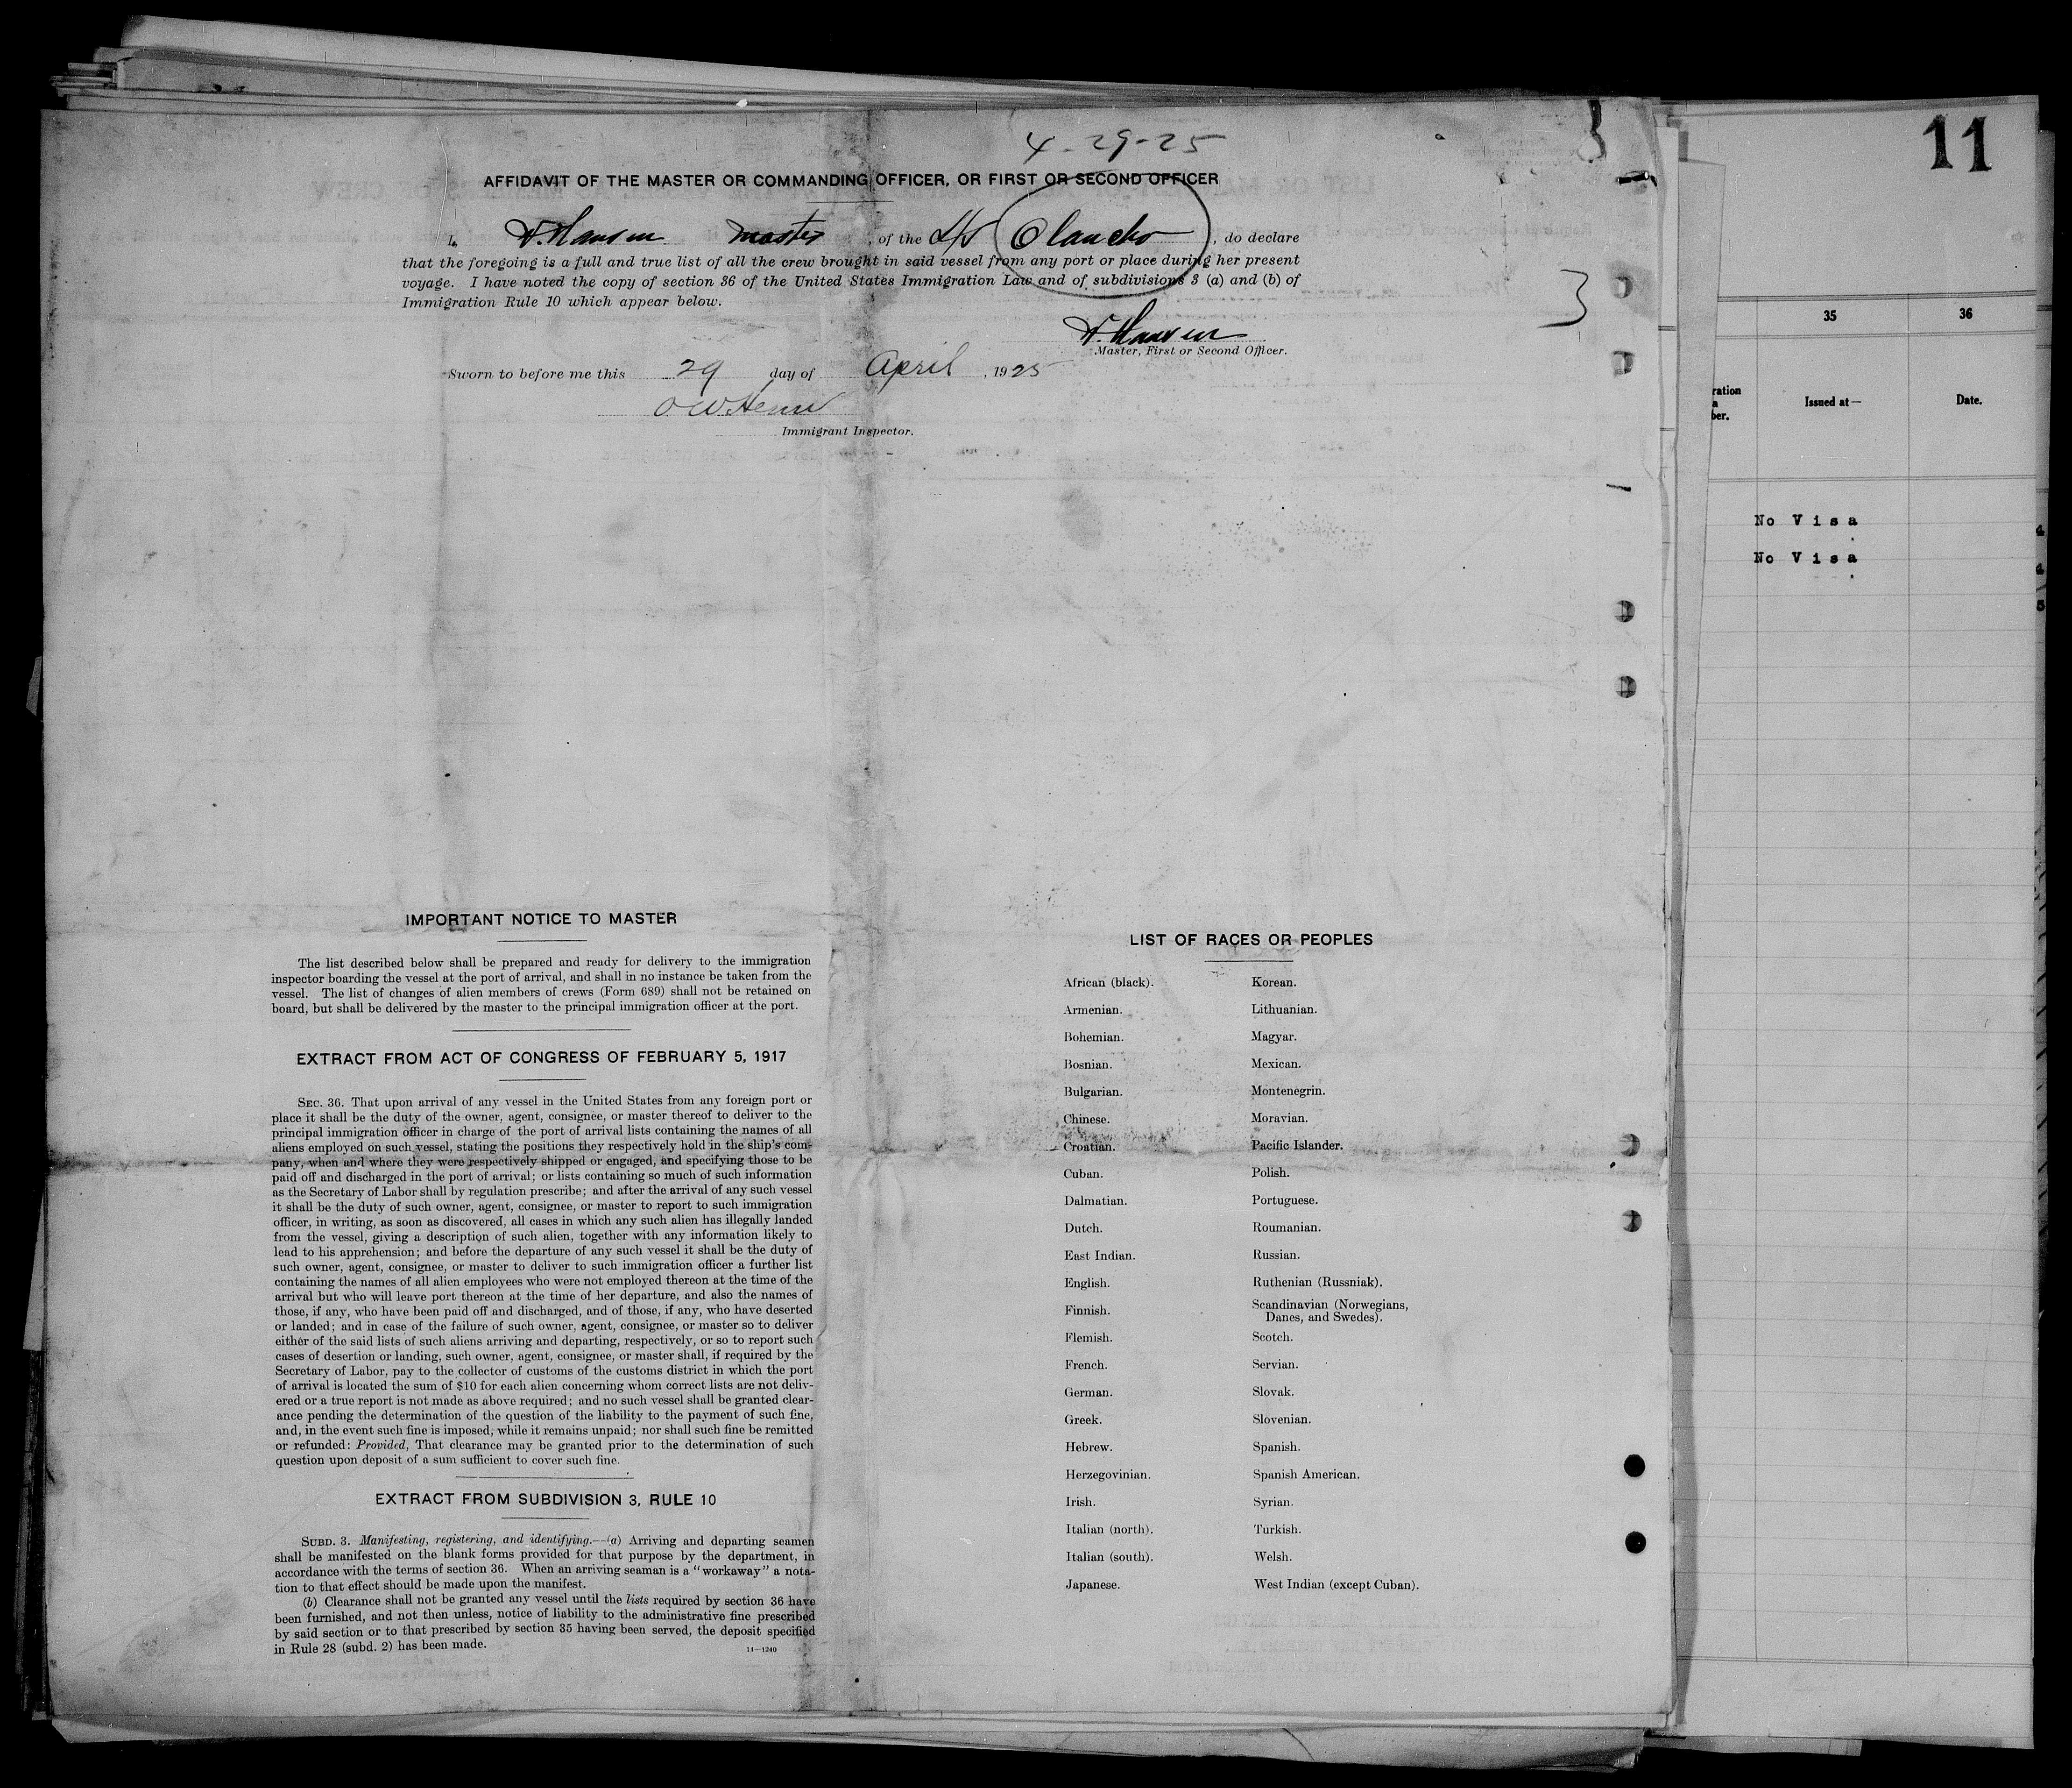 4-29-25
AFFIDAVIT OF THE MASTER OR COMMANDING OFFICER, OR FIRST OR SECOND OFFICER
I, Hansen master, of the S/S Olancho, do declare
that the foregoing is a full and true list of all the crew brought in said vessel from any port or place during her present
voyage. I have noted the copy of section 36 of the United States Immigration Law and of subdivisions 3 (a) and (b) of
Immigration Rule 10 which appear below.
3
Hansen
Master, First or Second Officer.
Sworn to before me this 29 day of April, 1925
O W
Immigrant Inspector.
IMPORTANT NOTICE TO MASTER
The list described below shall be prepared and ready for delivery to the immigration
inspector boarding the vessel at the port of arrival, and shall in no instance be taken from the
vessel. The list of changes of alien members of crews (Form 689) shall not be retained on
board, but shall be delivered by the master to the principal immigration officer at the port.
EXTRACT FROM ACT OF CONGRESS OF FEBRUARY 5, 1917
SEC. 36. That upon arrival of any vessel in the United States from any foreign port or
place it shall be the duty of the owner, agent, consignee, or master thereof to deliver to the
principal immigration officer in charge of the port of arrival lists containing the names of all
aliens employed on such vessel, stating the positions they respectively hold in the ship's com-
pany, when and where they were respectively shipped or engaged, and specifying those to be
paid off and discharged in the port of arrival; or lists containing so much of such information
as the Secretary of Labor shall by regulation prescribe; and after the arrival of any such vessel
it shall be the duty of such owner, agent, consignee, or master to report to such immigration
officer, in writing, as soon as discovered, all cases in which any such alien has illegally landed
from the vessel, giving a description of such alien, together with any information likely to
lead to his apprehension; and before the departure of any such vessel it shall be the duty of
such owner, agent, consignee, or master to deliver to such immigration officer a further list
containing the names of all alien employees who were not employed thereon at the time of the
arrival but who will leave port thereon at the time of her departure, and also the names of
those, if any, who have been paid off and discharged, and of those, if any, who have deserted
or landed; and in case of the failure of such owner, agent, consignee, or master so to deliver
either of the said lists of such aliens arriving and departing, respectively, or so to report such
cases of desertion or landing, such owner, agent, consignee, or master shall, if required by the
Secretary of Labor, pay to the collector of customs of the customs district in which the port
of arrival is located the sum of $10 for each alien concerning whom correct lists are not deliv-
ered or a true report is not made as above required; and no such vessel shall be granted clear-
ance pending the determination of the question of the liability to the payment of such fine,
and, in the event such fine is imposed, while it remains unpaid; nor shall such fine be remitted
or refunded: Provided, That clearance may be granted prior to the determination of such
question upon deposit of a sum sufficient to cover such fine.
EXTRACT FROM SUBDIVISION 3, RULE 10
SUBD. 3. Manifesting, registering, and identifying.—(a) Arriving and departing seamen
shall be manifested on the blank forms provided for that purpose by the department, in
accordance with the terms of section 36. When an arriving seaman is a "workaway" a nota-
tion to that effect should be made upon the manifest.
(b) Clearance shall not be granted any vessel until the lists required by section 36 have
been furnished, and not then unless, notice of liability to the administrative fine prescribed
by said section or to that prescribed by section 35 having been served, the deposit specified
in Rule 28 (subd. 2) has been made.
14-1240
LIST OF RACES OR PEOPLES
African (black). Korean.
Armenian. Lithuanian.
Bohemian. Magyar.
Bosnian. Mexican.
Bulgarian. Montenegrin.
Chinese. Moravian.
Croatian. Pacific Islander.
Cuban. Polish.
Dalmatian. Portuguese.
Dutch. Roumanian.
East Indian. Russian.
English. Ruthenian (Russniak).
Finnish. Scandinavian (Norwegians,
Danes, and Swedes).
Flemish. Scotch.
French. Servian.
German. Slovak.
Greek. Slovenian.
Hebrew. Spanish.
Herzegovinian. Spanish American.
Irish. Syrian.
Italian (north). Turkish.
Italian (south). Welsh.
Japanese. West Indian (except Cuban).
11
35 36
ration
a
ber.
Issued at— Date.
No Visa
No Visa